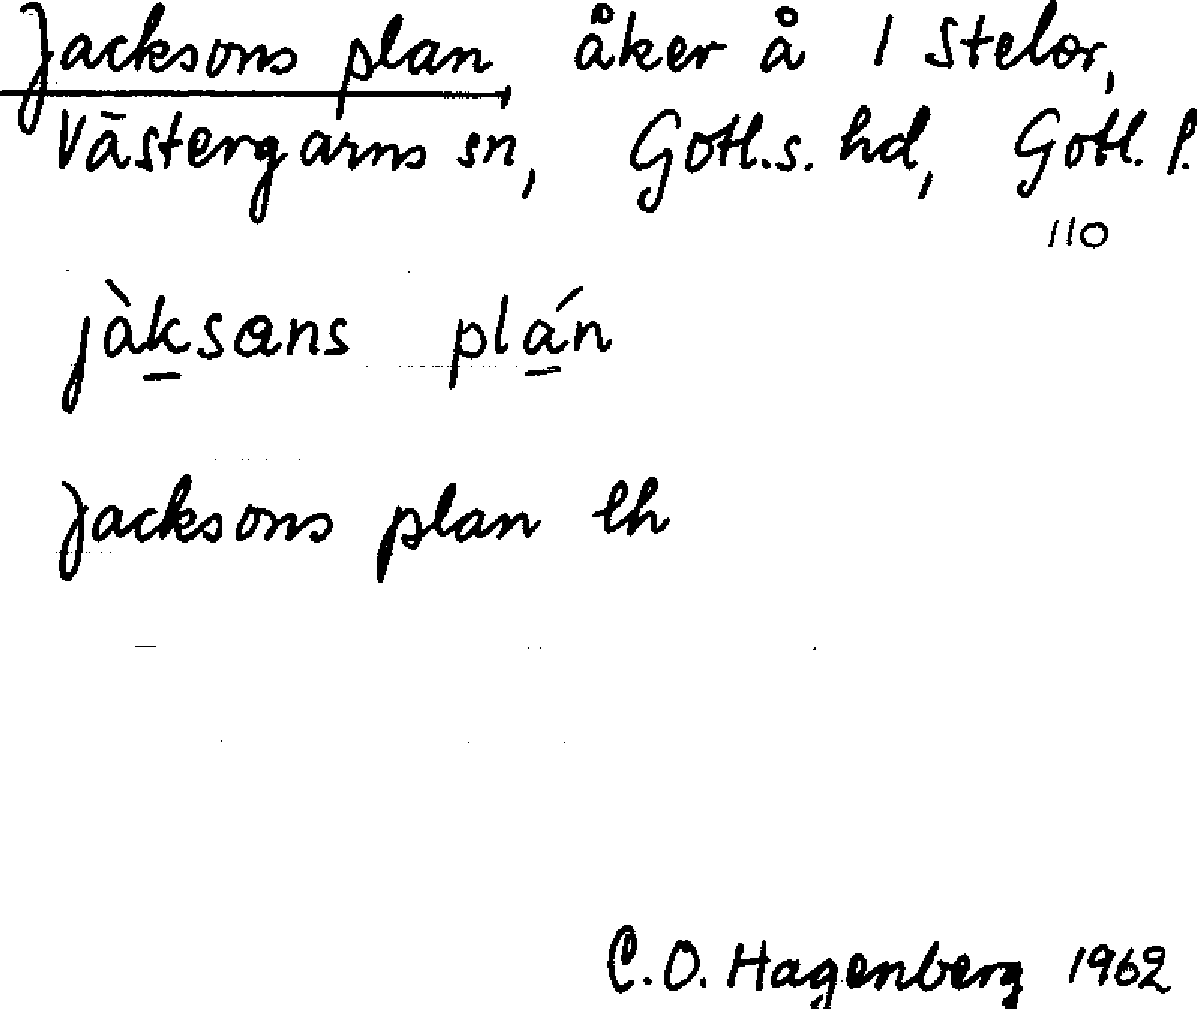 Jacksons plan, åker å 1 Stelor,
Västergarns sn, Gotl.s. hd, Gotl. l.
110
jàk̲sɑns plá̲n
Jacksons plan lh
C.O. Hagenberg 1962